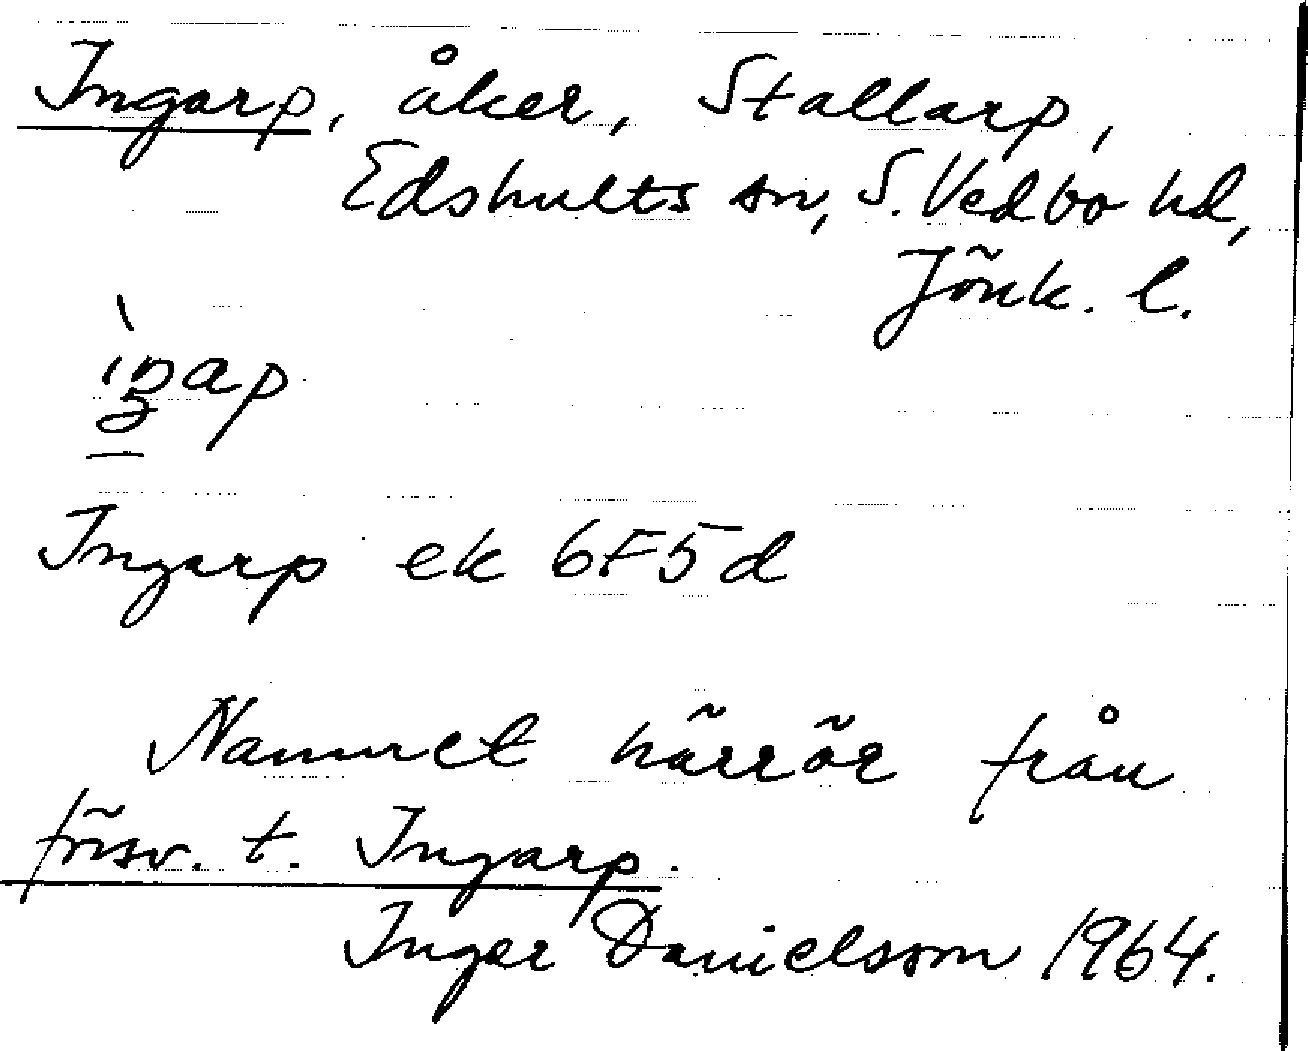 Ingarp, åker, Stallarp,
Edshults sn, S. Vedbo hd,
Jönk. l.
Ingarp ek 6F5d
Namnet härrör från
försv. t. Ingarp.
Inger Danielsson 1964.